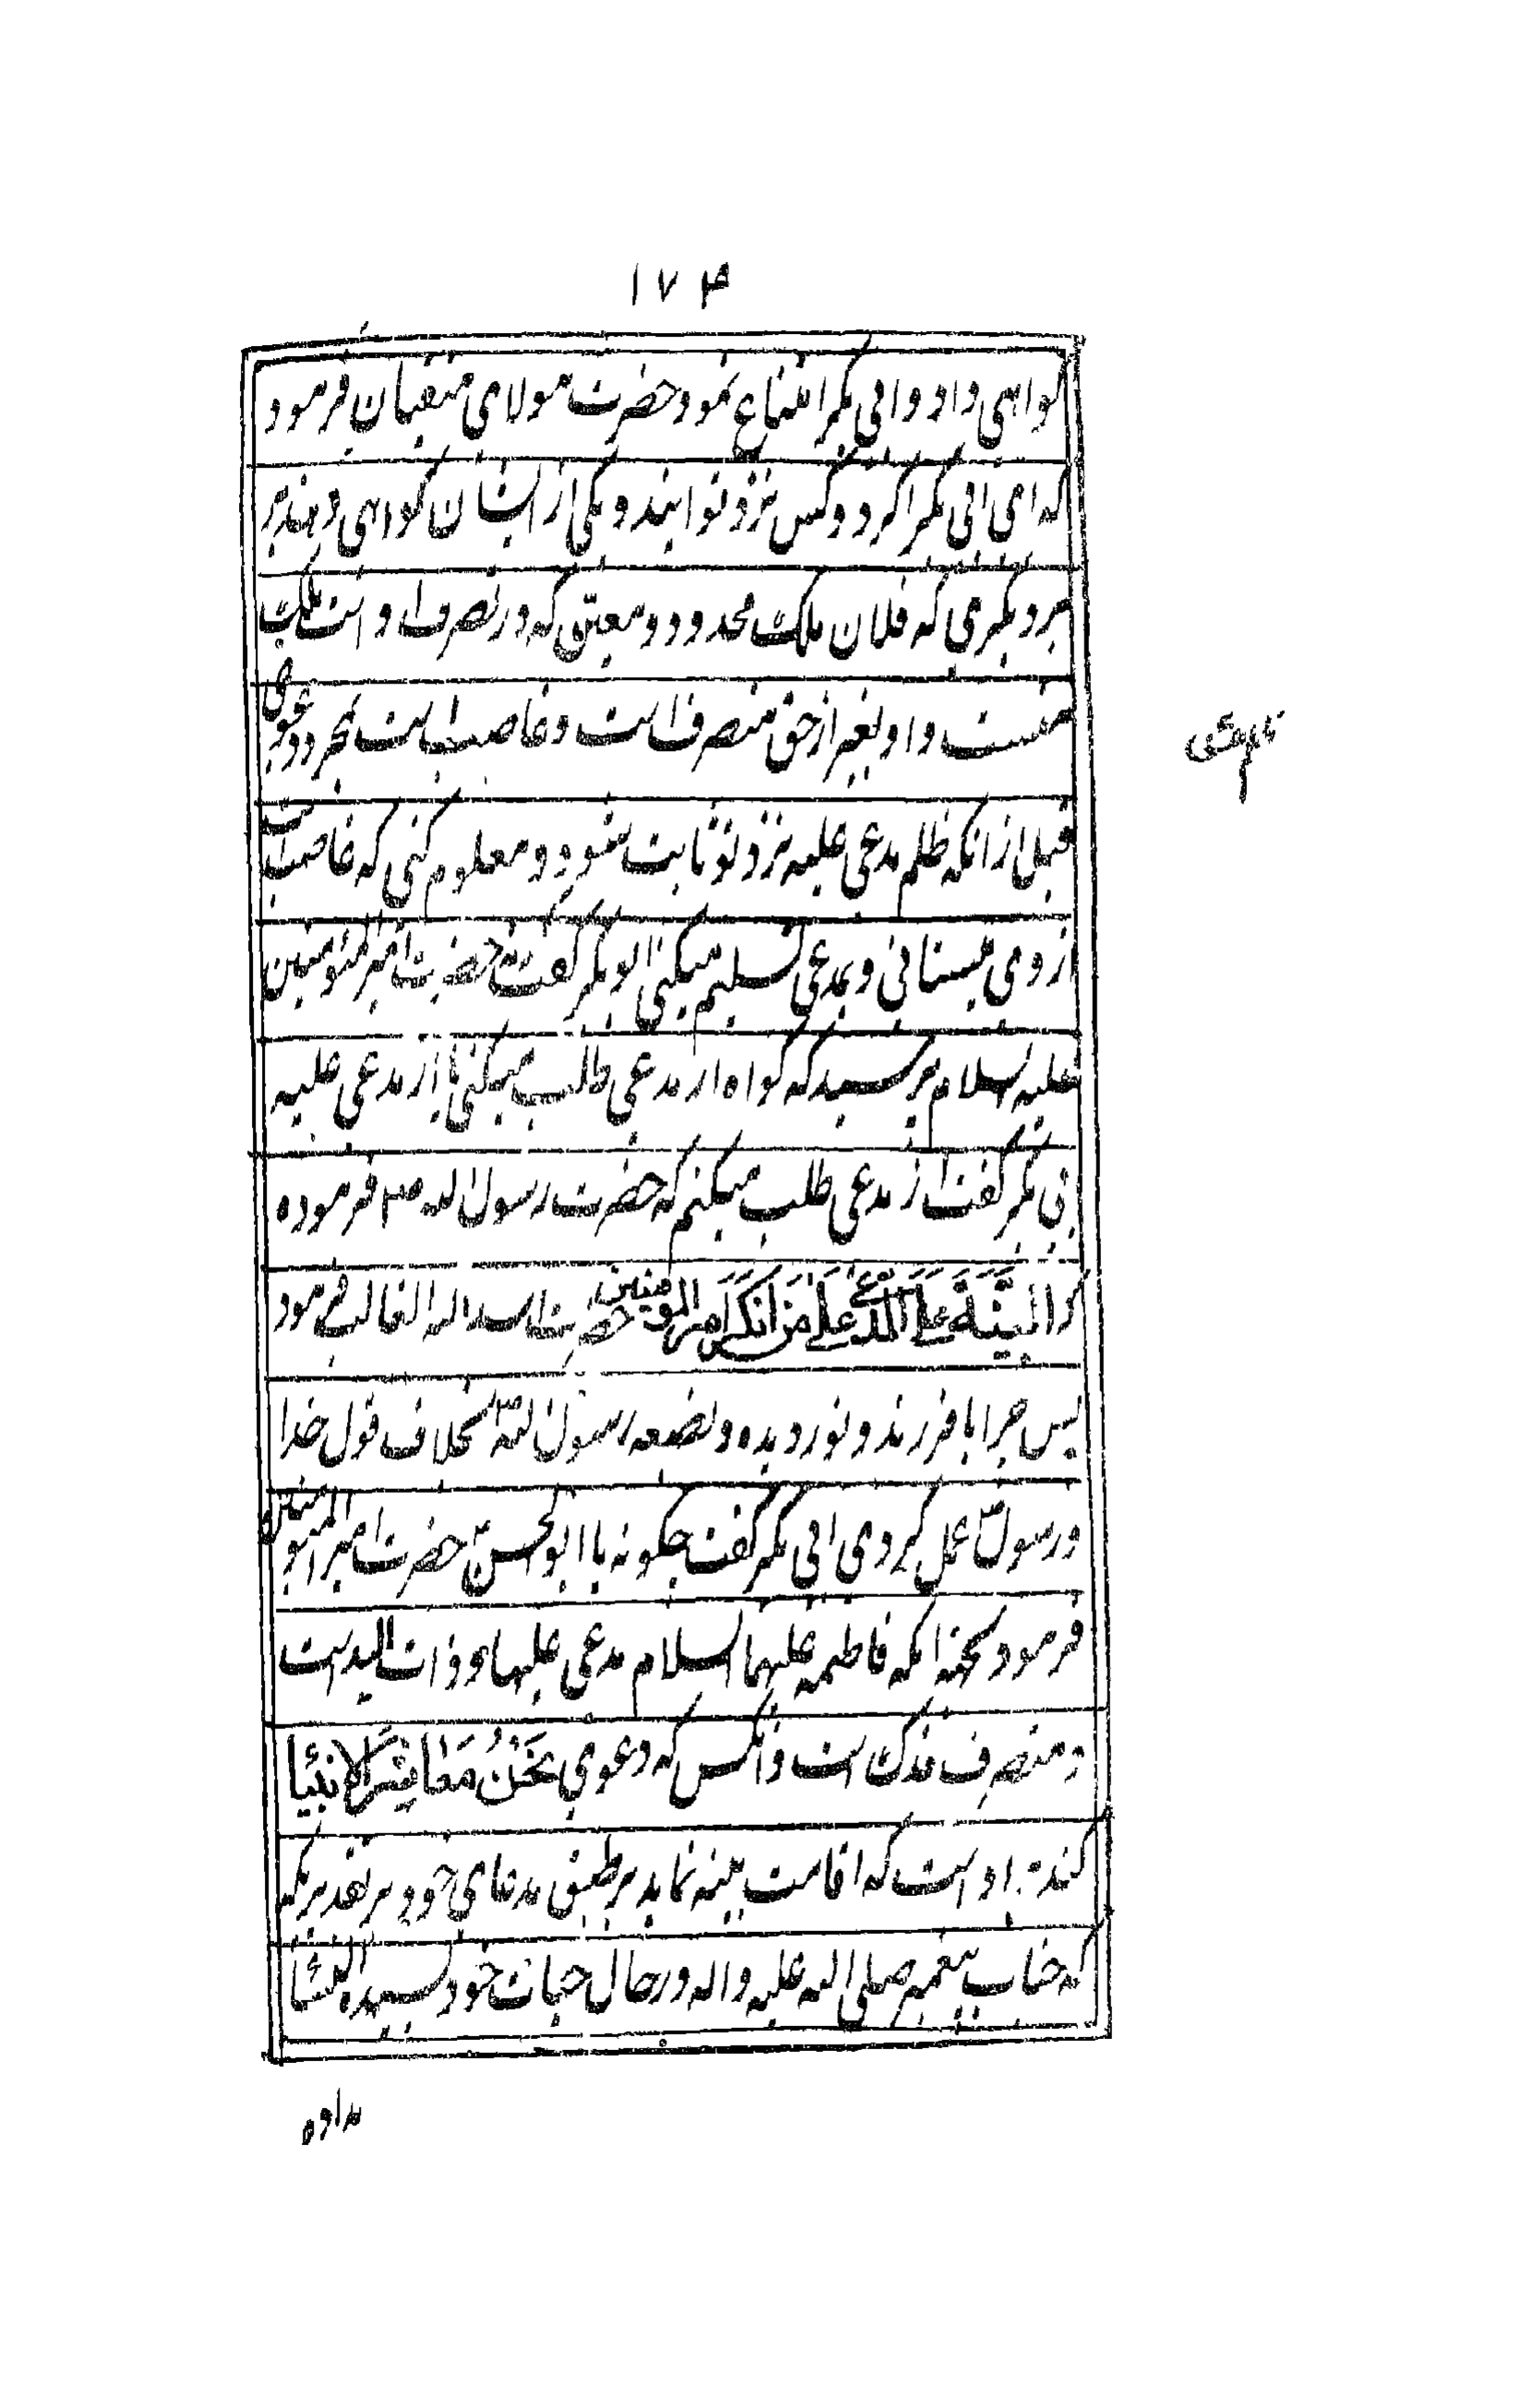 ۱۷۴
کواهی داد و ابی بکر امتناع نمود حضرت مولای متقیان فرمود
که ای ابی بکر اکر دو کس نزد تو ایند و یکی از ایشان کواهی دهد بر
بر دیکری که فلان ملک محدود و معین که در تصرف او است ملک
منست و او بغیر از حق متصرف است و غاصب است بمجرد دعوی
قبل از انکه ظلم مدعی علیه نزد تو ثابت شود و معلوم کنی که غاصب است
از وی میستانی و بمدعی تسلیم میکنی ابو بکر کفت نه حضرت امیر المؤمنین
علیه السلام پرسید که کواه از مدعی طلب میکنی یا از مدعی علیه
ابی بکر کفت از مدعی طلب میکنم که حضرت رسول الله ص فرموده
که البَیِّنَةُ عَلَی المُدَّعی عَلی مَنْ اَنْکَرَ امیر المؤمنین حضرت اسد الله الغالب فرمود
پس چرا با فرزند و نور دیده و بضعه رسول الله ص بخلاف قول خدا
و رسول ص عمل کردی ابی بکر کفت چکونه یا ابو الحسن ع حضرت امیر المؤمنین
فرمود بجهة انکه فاطمه علیها السلام مدعی علیها و ذات الید است
و متصرف فدک است و انکس که دعوی نَحْنُ مَعاشِرَ الاَنبیا
کند او است که اقامت بینه نماید بر طبق مدعای خود بر تقدیریکه
که جناب پیغمبر صلی الله علیه و اله در حال حیات خود بسیده النسا
نداده